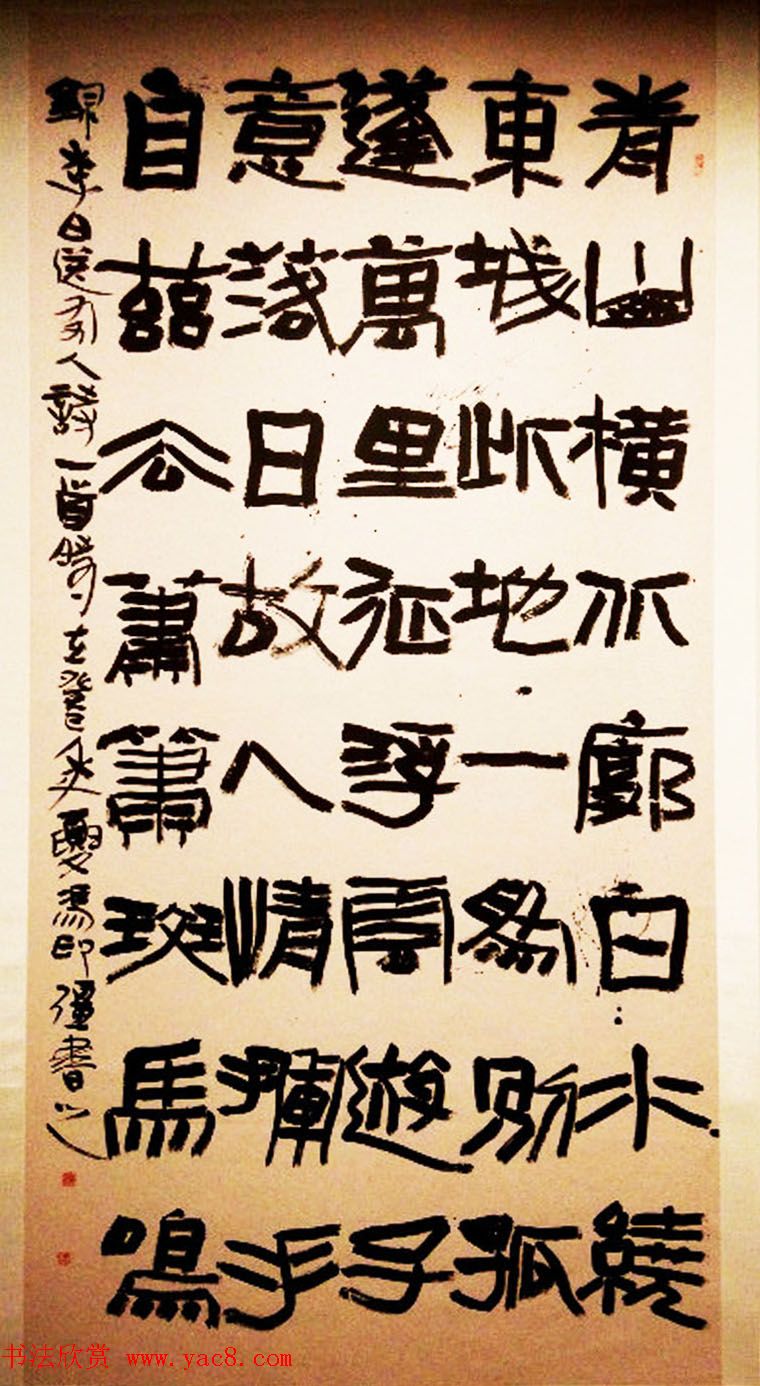 青山橫北廓白水繞
東城此地一為別孤
蓬萬里征浮雲遊子
意落日故人情揮手
自茲去蕭蕭班馬鳴
錄李白送友人詩一首時在夏馮印強書之
书法欣赏 www.yac8.com